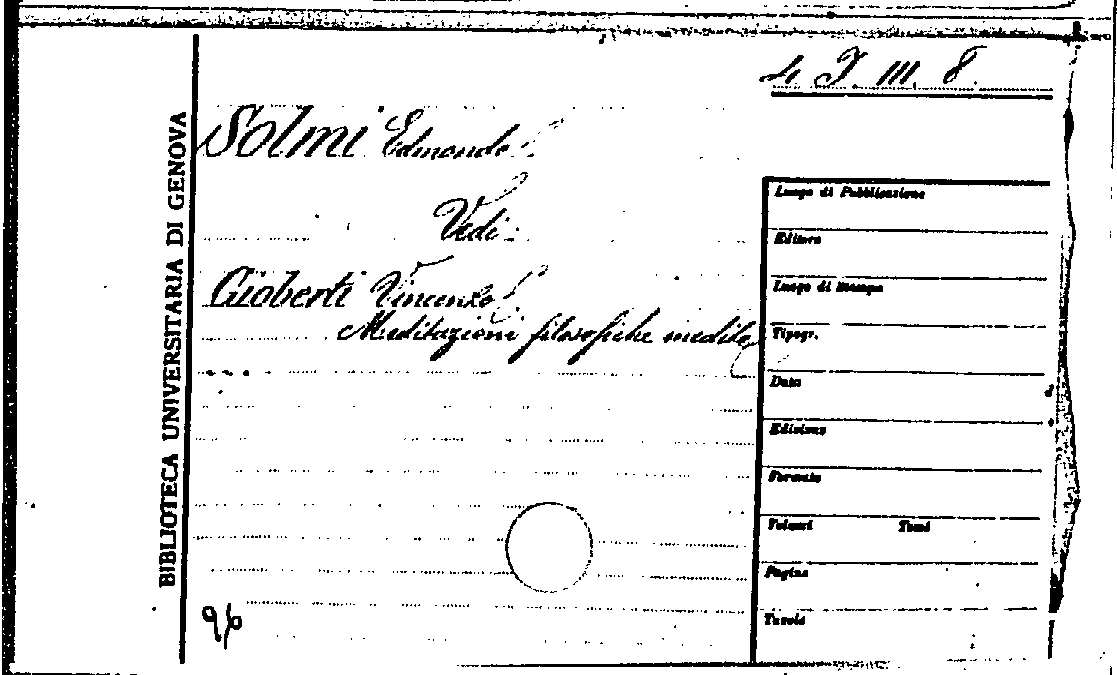 BIBLIOTECA UNIVERSITARIA DI GENOVA
4 J. III. 8.
Solmi Edmondo
Vedi:
Gioberti Vincenzo
Meditazioni filosofiche inedite
Luogo di Pubblicazione
Editore
Luogo di Stampa
Tipogr.
Data
Edizione
Formato
Volumi Tomi
Pagine
Tavole